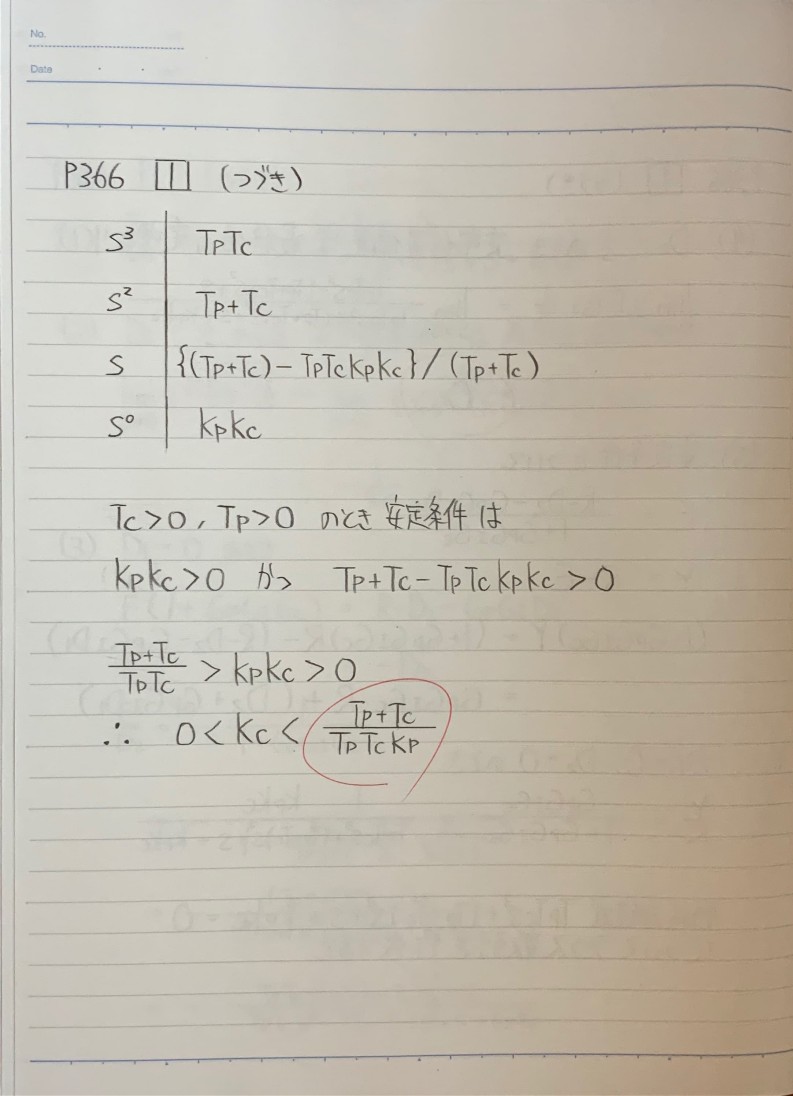 No.
Date
P366 1 (つづき)
S³ TpTc
S² Tp+Tc
S {(Tp+Tc)-TpTcKpKc}/(Tp+Tc)
S⁰ KpKc
Tc>0, Tp>0 のとき 安定条件は
KpKc>0 かつ Tp+Tc-TpTcKpKc>0
Tp+Tc/TpTc > KpKc > 0
∴ 0<Kc< Tp+Tc/TpTcKp